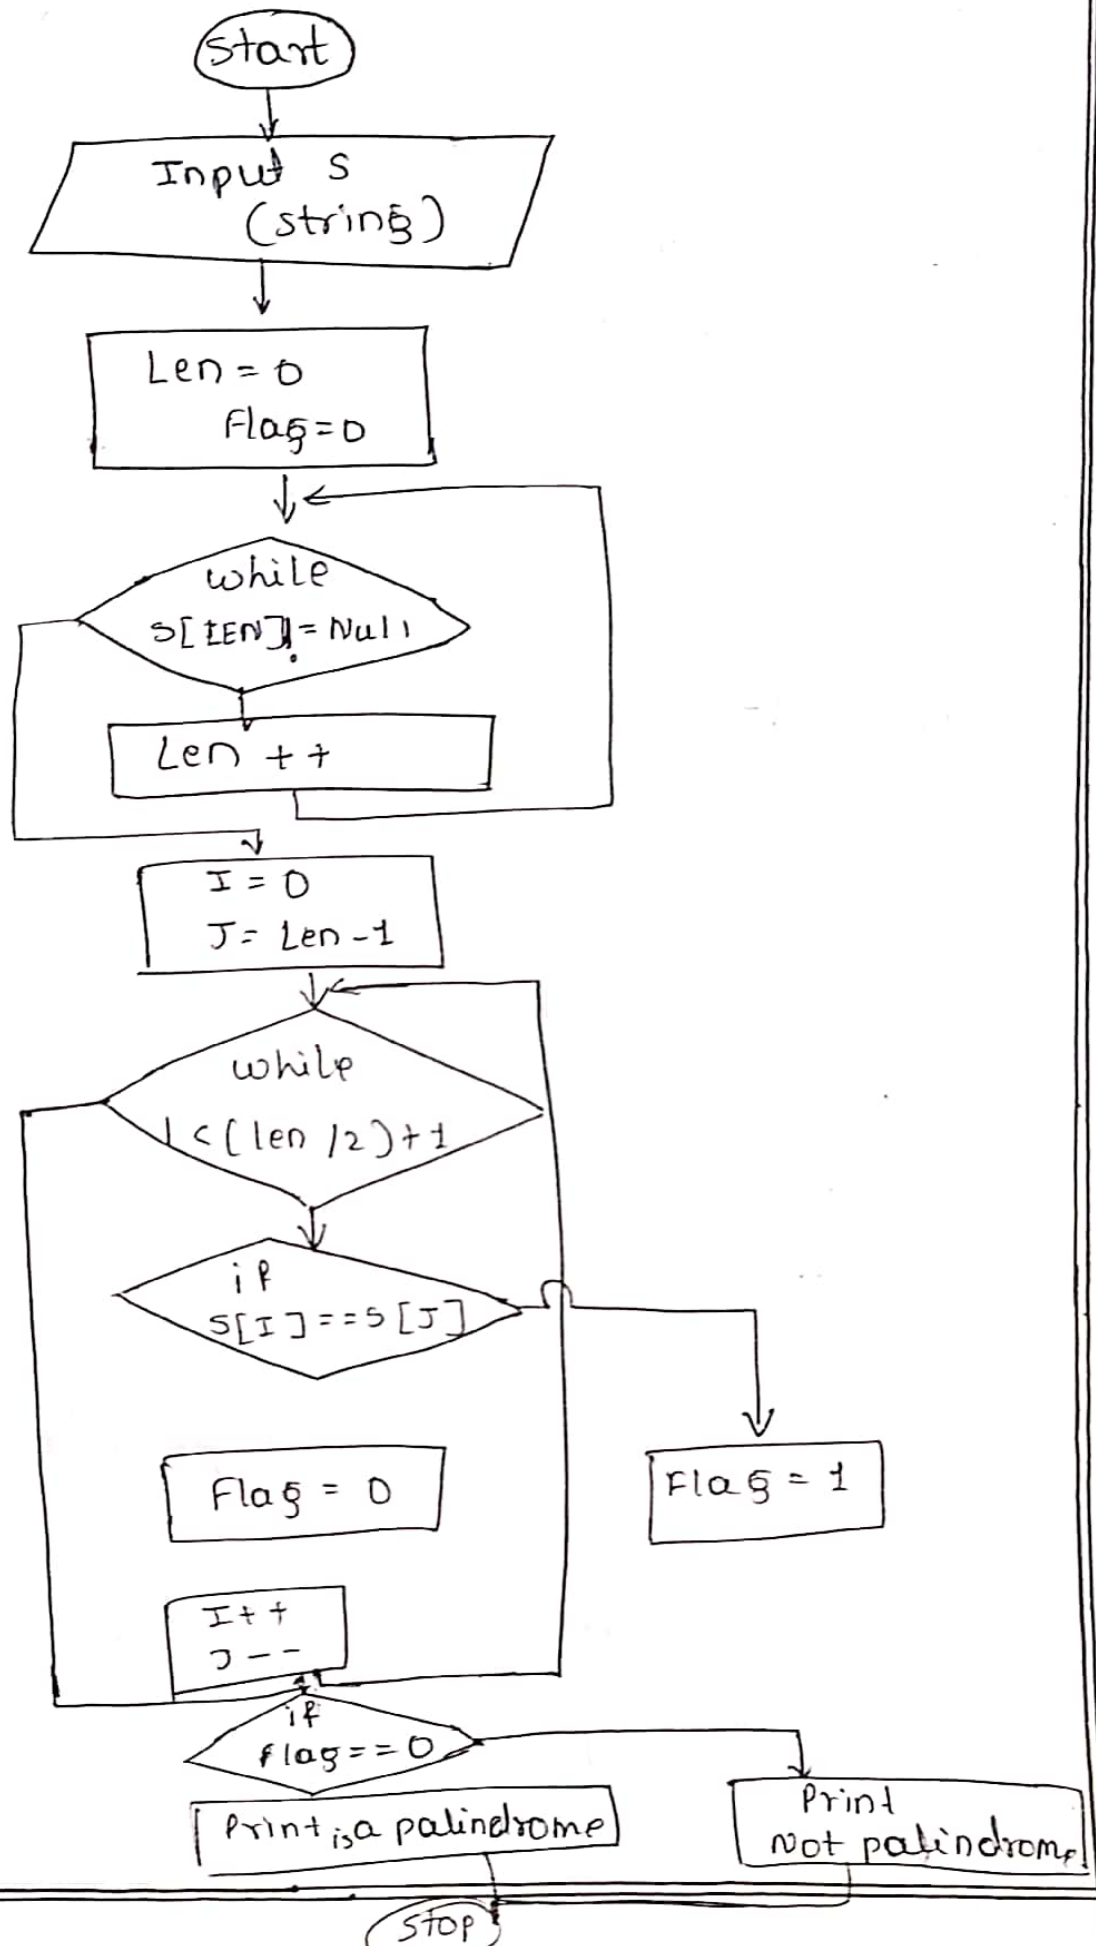 Start
Input S
(string)
Len = 0
Flag = 0
while
S[LEN]!= Null
Len ++
I = 0
J = Len - 1
while
I < (len /2) + 1
if
S[I] == S[J]
Flag = 0
Flag = 1
I++
J--
if
flag == 0
Print is a palindrome
Print
Not palindrome
Stop